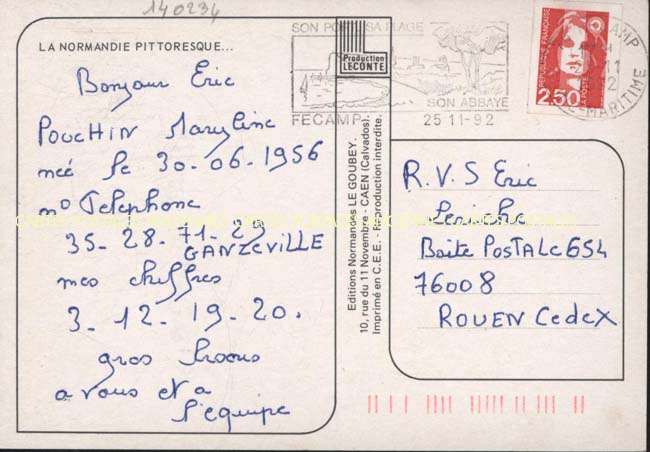 140234
LA NORMANDIE PITTORESQUE...
Bonjour Eric
POUCHIN Maryline
née le 30.06.1956
n° Telephone
35.28.71.29
GANZEVILLE
mes chiffres
3.12.19.20.
gros bisous
a vous et a
l'équipe
SON PORT SA PLAGE
SON ABBAYE
FECAMP
25 11-92
Production
LECONTE
Editions Normandes LE GOUBEY.
10, rue du 11 Novembre - CAEN (Calvados).
Imprimé en C.E.E. - Reproduction interdite.
REPUBLIQUE FRANÇAISE
2,50
LA POSTE
E-MARITIME
R.V.S Eric
Boite PostALe 654
76008
ROUEN CedeX